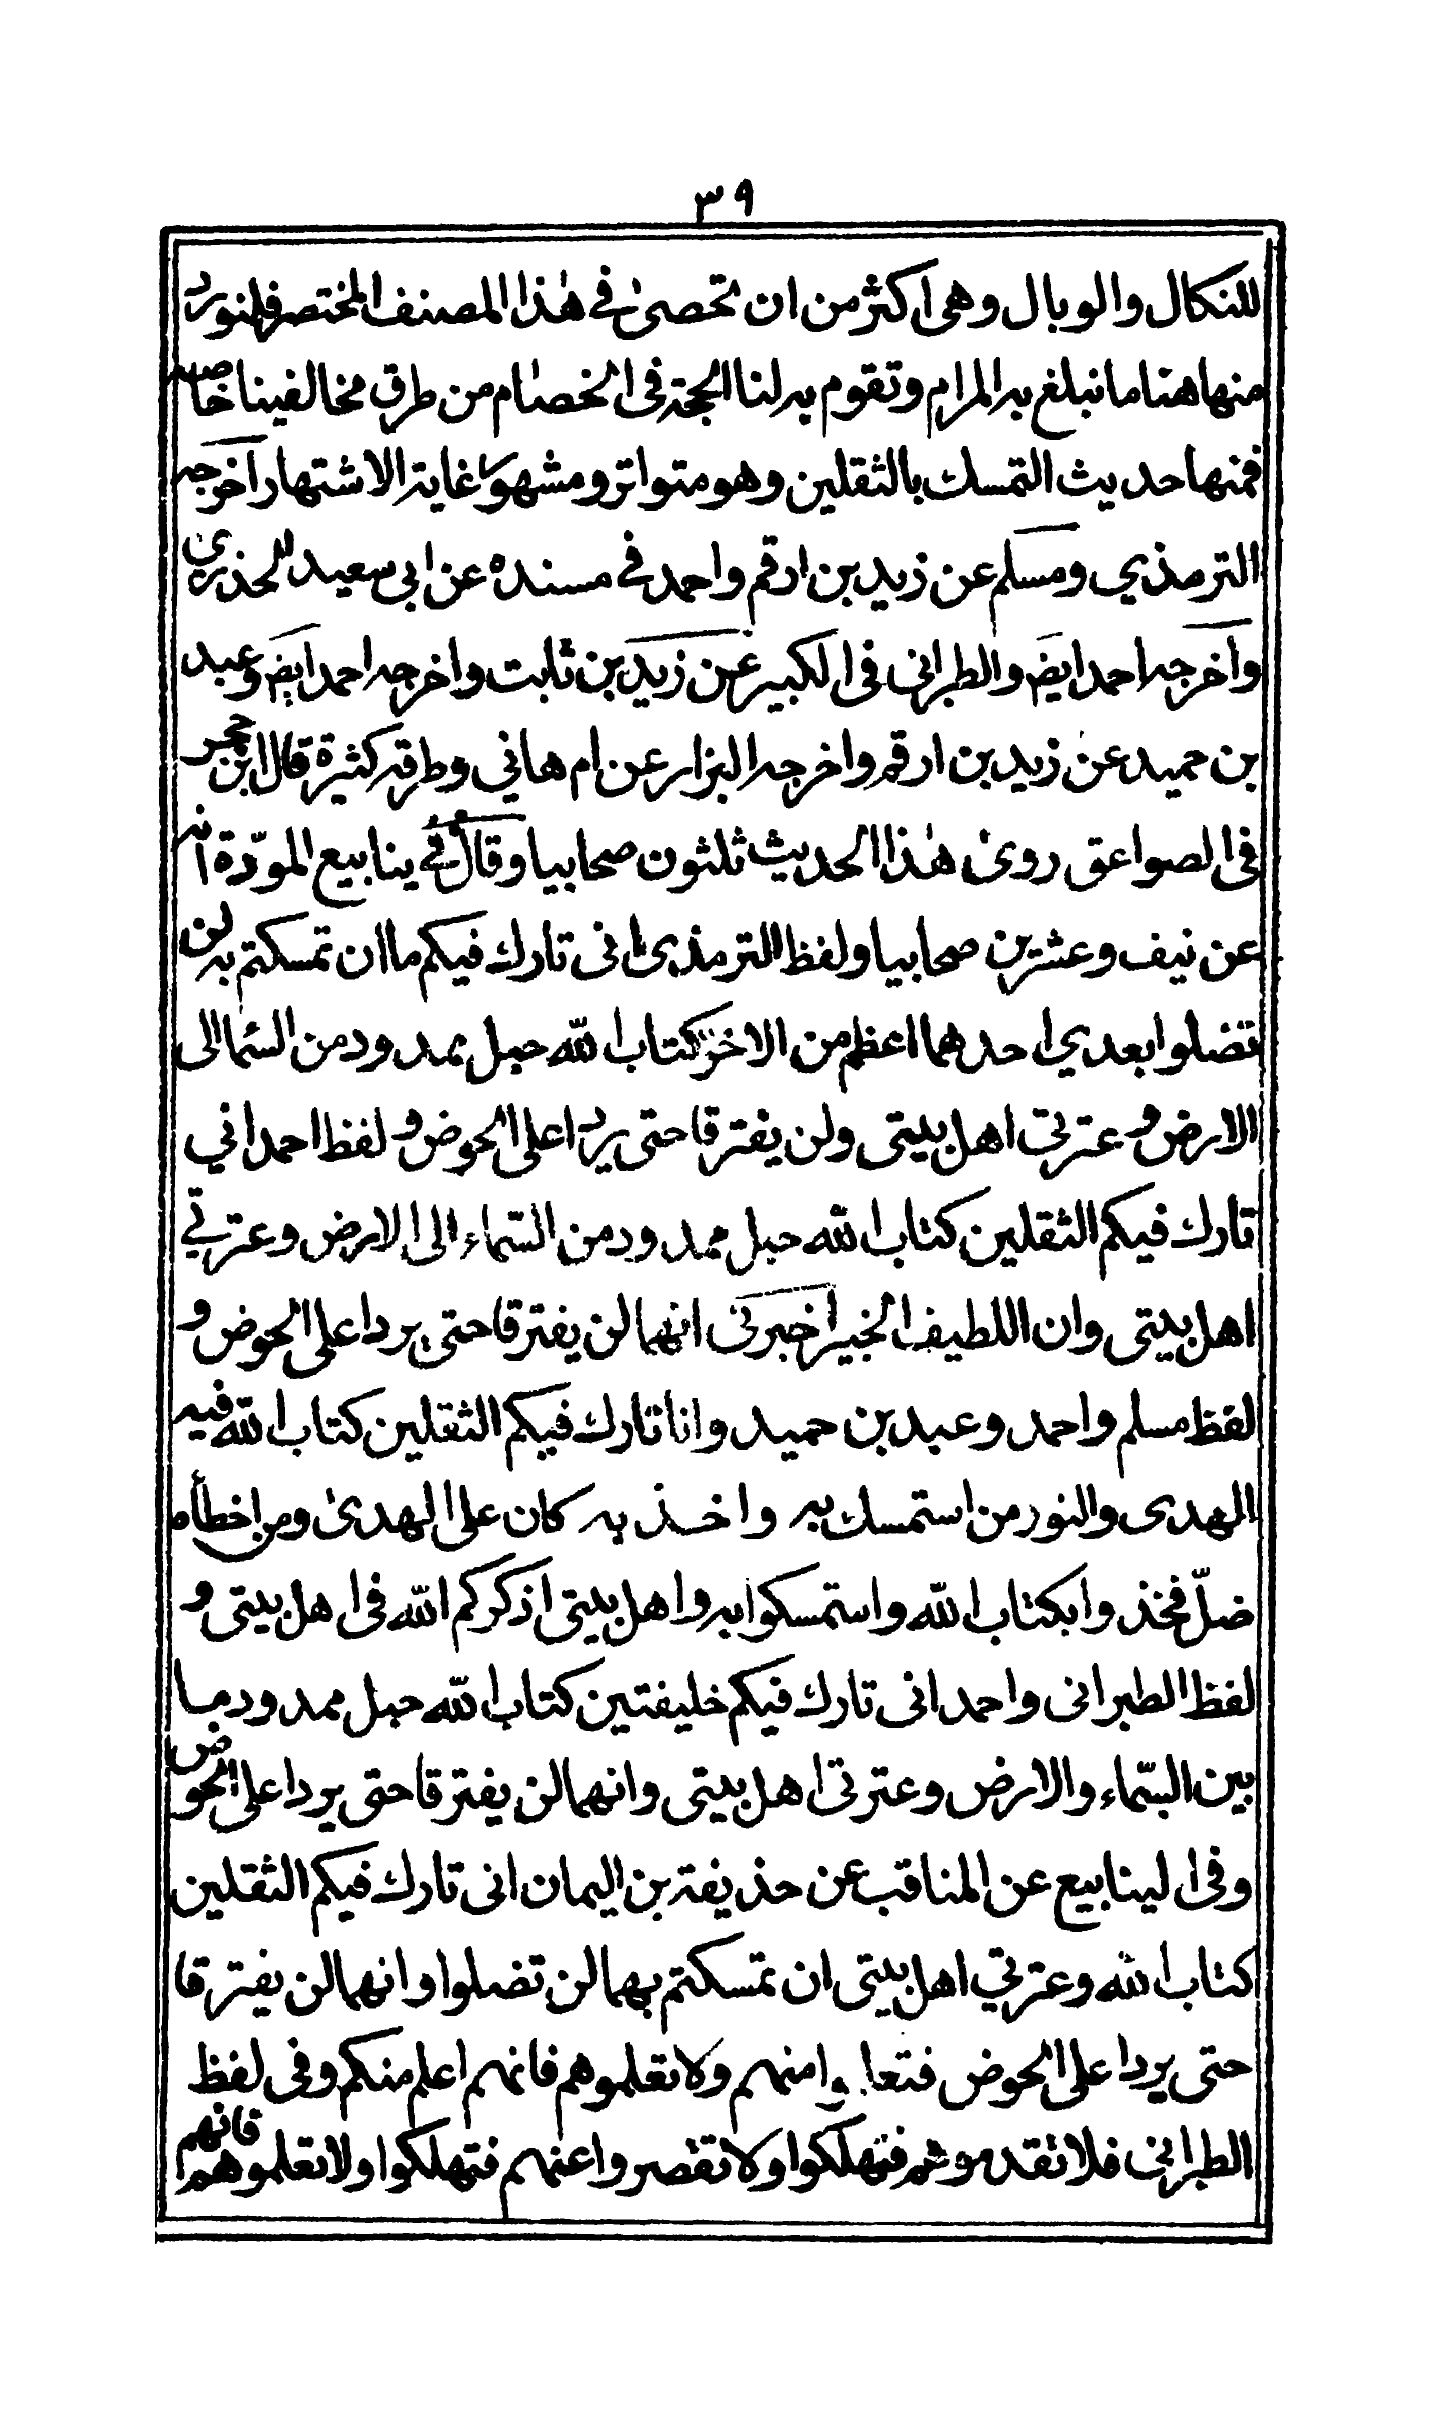 ٣٩
للنكال والوبال وهي اكثر من ان تحصىٰ في هٰذا المصنف المختصر فلنورد
منها هنا ما نبلغ به المرام وتقوم به لنا الحجة في الخصام من طرق مخالفينا خاصه
فمنها حديث التمسك بالثقلين وهو متواتر ومشهور غاية الاشتهار اخرجه
الترمذي ومسلم عن زيد بن ارقم واحمد في مسنده عن ابي سعيد الخذري
واخرجه احمد ايض والطبراني في الكبير عن زيد بن ثابت واخرجه احمد ايض وعبد
بن حميد عن زيد بن ارقم واخرجه البزار عن ام هاني وطرقه كثيرة قال ابن حجر
في الصواعق روىٰ هٰذا الحديث ثلثون صحابيا وقال في ينابيع المودّة انه
عن نيف وعشرين صحابيا ولفظ الترمذي اني تارك فيكم ما ان تمسكتم به لن
تضلوا بعدي احدهما اعظم من الاخر كتاب الله حبل ممدود من السما الى
الارض وعترتي اهل بيتي ولن يفترقا حتى يردا على الحوض ولفظ احمد اني
تارك فيكم الثقلين كتاب الله حبل ممدود من السّماء الى الارض وعترتي
اهل بيتي وان اللطيف الخبير اخبرني انهما لن يفترقا حتى يردا على الحوض و
لفظ مسلم واحمد وعبد بن حميد وانا تارك فيكم الثقلين كتاب الله فيه
الهدى والنور من استمسك به واخذ به كان على الهدىٰ ومن اخطأه
ضلّ فخذوا بكتاب الله واستمسكوا به واهل بيتي اذكركم الله في اهل بيتي و
لفظ الطبراني واحمد اني تارك فيكم خليفتين كتاب الله حبل ممدود ما
بين السّماء والارض وعترتي اهل بيتي وانهما لن يفترقا حتى يردا على الحوض
وفي الينابيع عن المناقب عن حذيفة بن اليمان اني تارك فيكم الثقلين
كتاب الله وعترتي اهل بيتي ان تمسكتم بهما لن تضلوا وانهما لن يفترقا
حتى يردا على الحوض فتعلموا منهم ولا تعلموهم فانهم اعلم منكم وفي لفظ
الطبراني فلا تقدموهم فتهلكوا ولا تقصروا عنهم فتهلكوا ولا تعلموهم فانهم